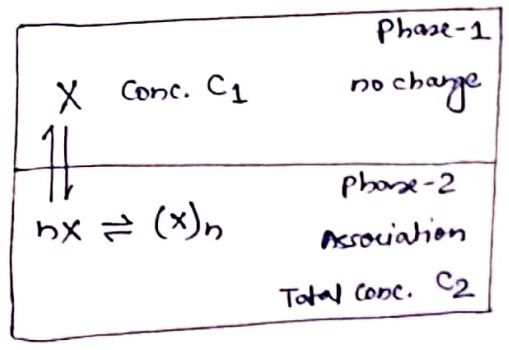 Phase-1
X Conc. C₁ no change
⇌
nX ⇌ (X)n
Phase-2
Association
Total Conc. C₂